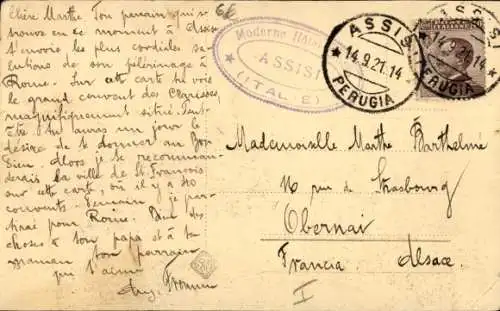 Chère Marthe Ton parrain qui se
trouve en ce moment à Assise
t'envoie les plus cordiales sa-
lutations de son pélerinage à
Rome. Sur cette carte tu vois
le grand couvent des
magnifiquement situé. Peut-
être tu auras un jour le
désir de te donner au bon
Dieu. Alors je te recomman-
derais la ville de St François
sur cette carte, où il y a 40
couvents. Demain, je par-
tirai pour Rome. Bien des
choses à ton papa et à ta
maman ton parrain
qui t'aime
6E
Moderne Hôtel
ASSISI
(ITALIE)
ASSISI
14.9.21.14
PERUGIA
ASSISI
14.9.21.14
PERUGIA
Mademoiselle Marthe Barthelmé
16 rue de Strasbourg
Obernai
Francia Alsace.
I